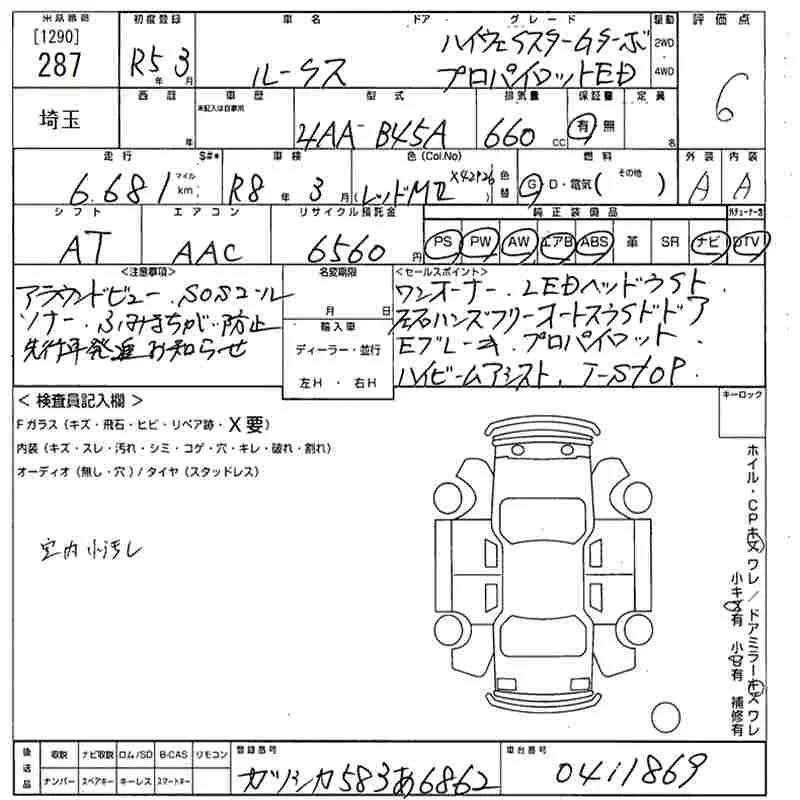 [1290]
287
初度登録
R5年 3月
車名 ドア グレード
ルークス
ハイウェイスターGターボ
プロパイロットED
駆動
2WD
4WD
評価点
6
埼玉
西暦
年
車歴
未記入は自家用
型式
4AA-B45A
排気量
660 cc
保証書
有 無
定員
名
走行
6.681 マイル km
S#*
車検
R8年 3月
色 (Col.No)
(レッドMⅡ X42926)
色替
燃料
G D・電気( その他 )
外装
A
内装
A
シフト
AT
エアコン
AAC
リサイクル預託金
6560円
純正装備品
PS PW AW エアB ABS 革 SR ナビ DTV
<注意事項>
アラウンドビュー . SOSコール
ソナー . ふみまちがい防止
先行車発進お知らせ
名変期限
月 日
輸入車
ディーラー・並行
左H ・ 右H
<セールスポイント>
ワンオーナー . LEDヘッドライト .
左右ハンズフリーオートスライドドア
Eブレーキ . プロパイロット .
ハイビームアシスト . I-STOP .
キーロック
< 検査員記入欄 >
Fガラス (キズ・飛石・ヒビ・リペア跡・X要)
内装 (キズ・スレ・汚れ・シミ・コゲ・穴・キレ・破れ・割れ)
オーディオ (無し・穴) / タイヤ (スタッドレス)
室内小汚レ
ホイル・CPキズ ワレ / ドアミラーキズ ワレ
小キズ有 小凹有 補修有
後送品
取説 ナビ取説 ロム/SD B-CAS リモコン
ナンバー スペアキー キーレス スマートキー
登録番号
カツシカ583あ6862
車台番号
0411869